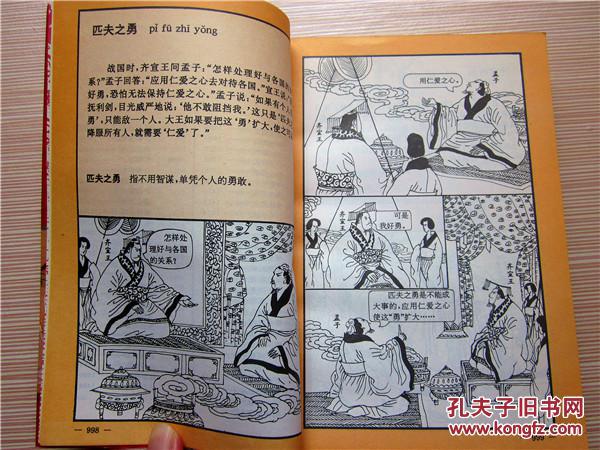 匹夫之勇 pǐ fū zhī yǒng
战国时，齐宣王问孟子：“怎样处理好与各国的关
系？”孟子回答：“应用仁爱之心去对待各国。”宣王说：“
好勇，恐怕无法保持仁爱之心。”孟子说：“如果有个人
抚利剑，目光威严地说：‘他不敢阻挡我。’这只是‘匹夫
勇’，只能敌一个人。大王如果要把这‘勇’扩大，使之可
降服所有人，就需要‘仁爱’了。”
匹夫之勇 指不用智谋，单凭个人的勇敢。
怎样处
理好与各国
的关系？
齐宣王
— 998 —
用仁爱之心。
孟子
齐宣王
可是
我好勇。
齐宣王
匹夫之勇是不能成
大事的，应用仁爱之心
使这“勇”扩大……
孟子
齐宣王
999
孔夫子旧书网
www.kongfz.com